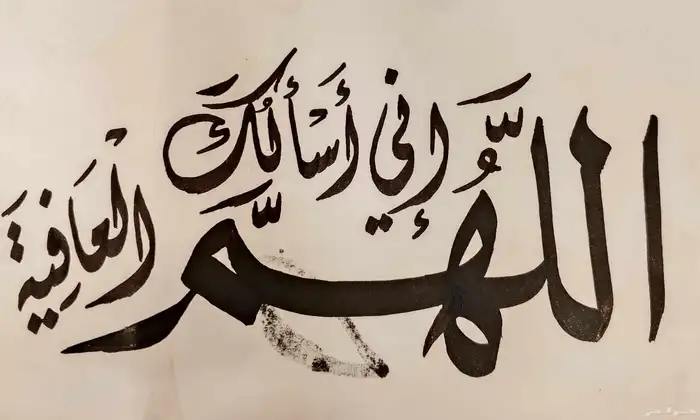 اللَّهُمَّ إني أسألُكَ العَافِيَةَ